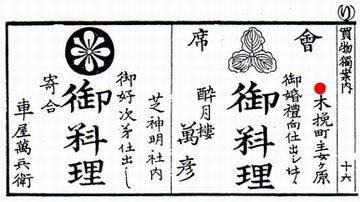 り
買物獨案内
十六
會席
木挽町采女ヶ原
御婚禮向仕出し仕候
御料理
酔月樓
萬彦
芝神明社内
御好次第仕出し
御料理
寄合
車屋萬兵衛